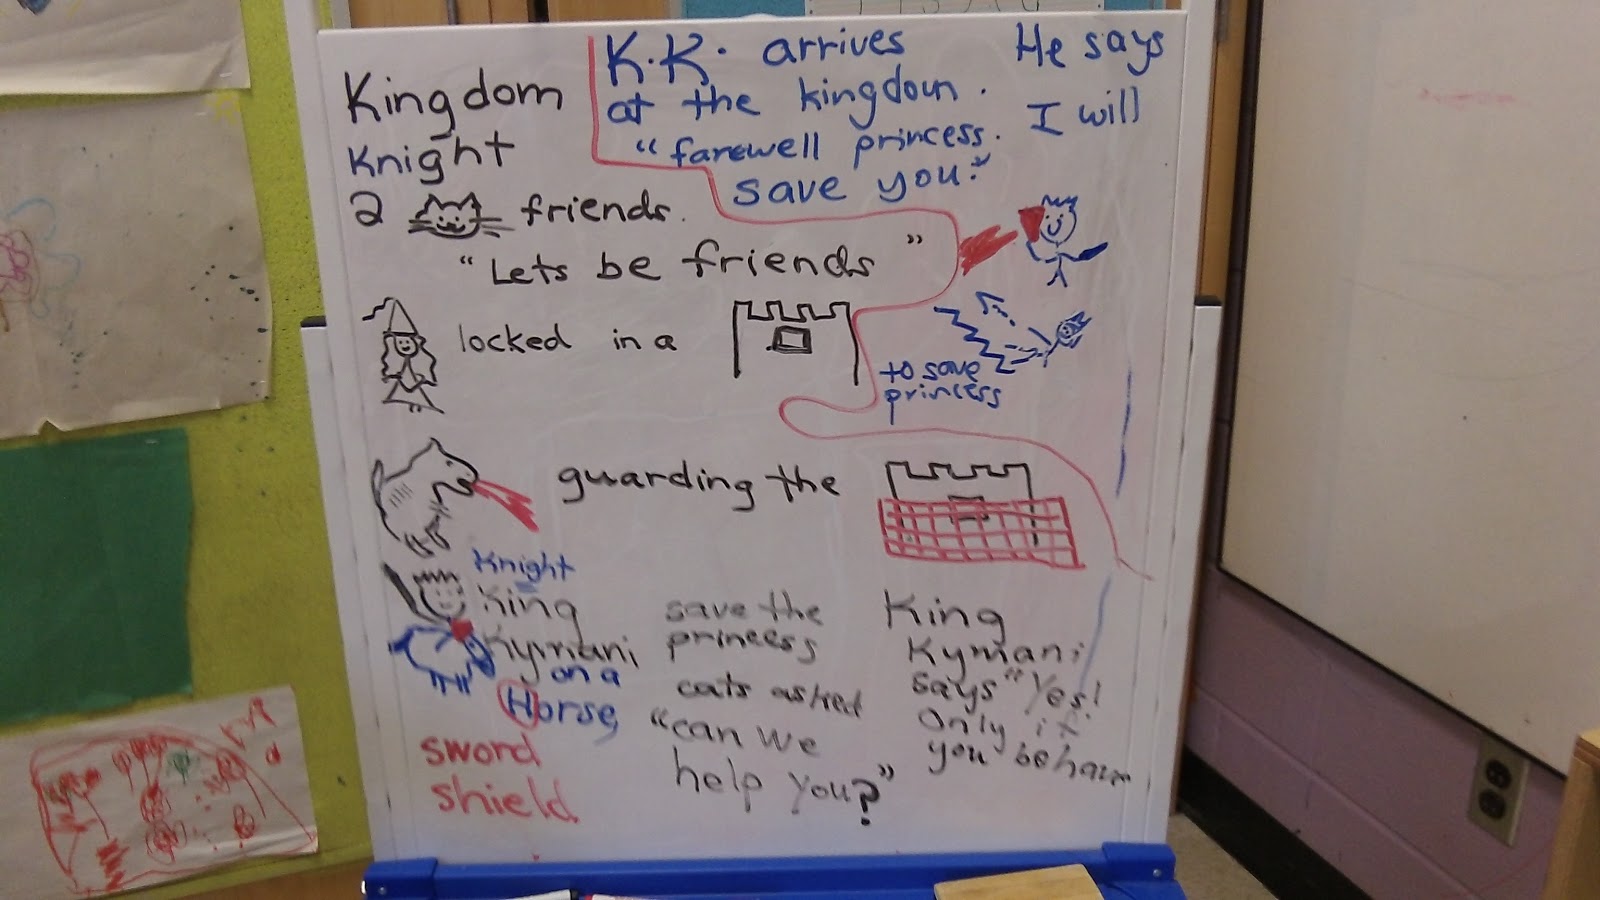 Kingdom
Knight
2 friends.
"Lets be friends"
locked in a
guarding the
Knight
King
Kymani
on a
Horse,
sword
shield
save the
princess
cats asked
"can we
help you?"
King
Kymani
says "Yes!
Only if
you behave
K.K. arrives
at the kingdoun.
"farewell princess.
He says
I will
save you."
to save
princess